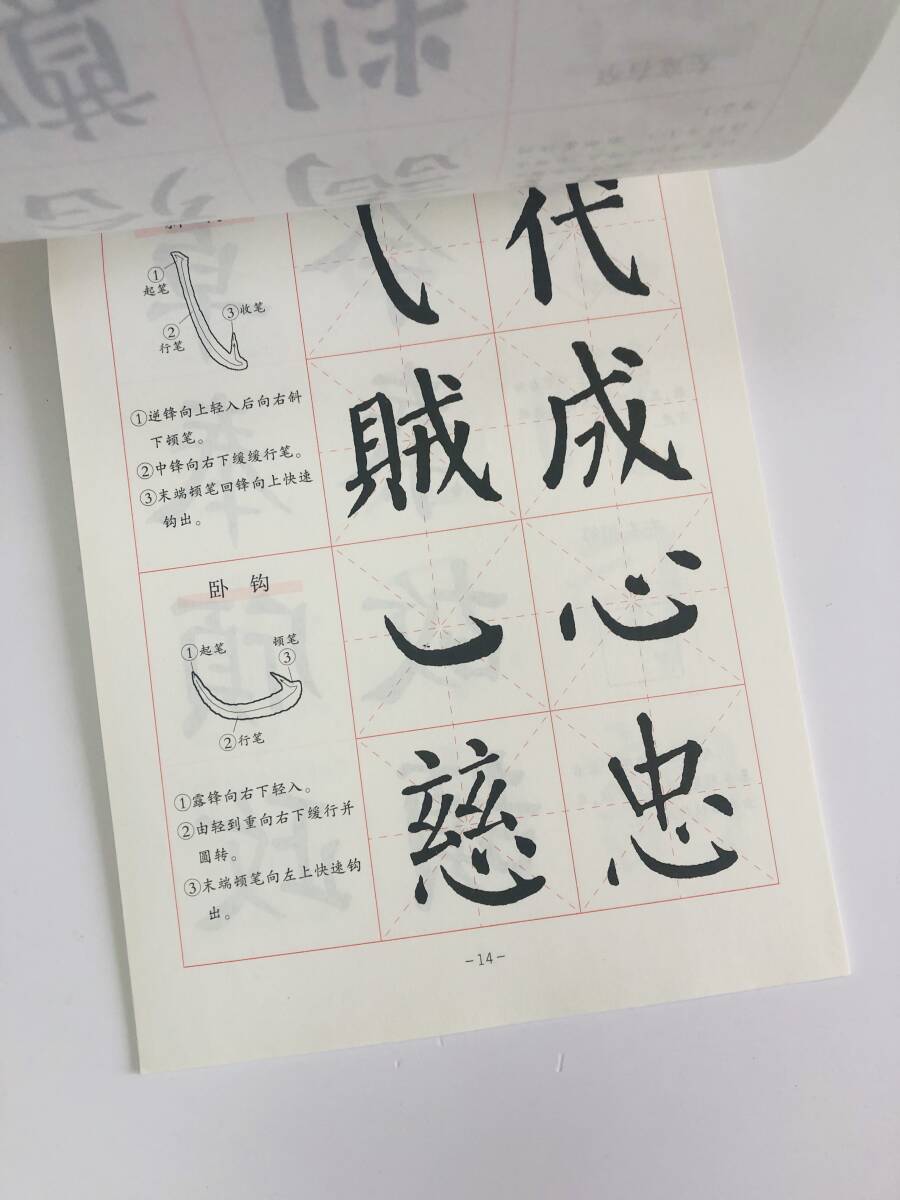 ①
起笔
③收笔
②
行笔
①逆锋向上轻入后向右斜
下顿笔。
②中锋向右下缓缓行笔。
③末端顿笔回锋向上快速
钩出。
代
賊 成
卧 钩
①起笔
顿笔
③
②行笔
①露锋向右下轻入。
②由轻到重向右下缓行并
圆转。
③末端顿笔向左上快速钩
出。
心
慈 忠
-14-